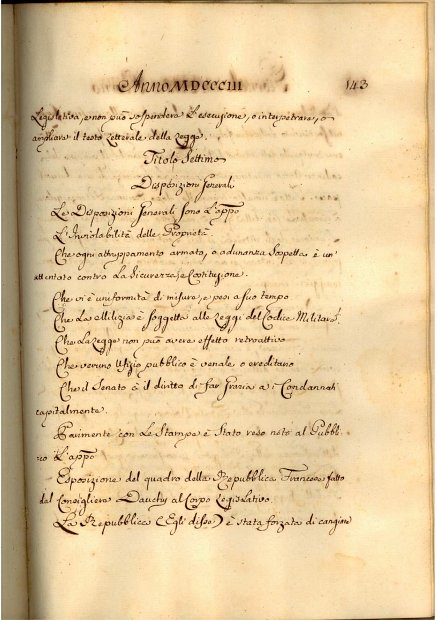 Anno MDCCCIII 143
Legislativa, e non può sospendere l'esecuzione, o interpetrare, o
ampliare il testo letterale della Legge.
Titolo Settimo
Disposizioni Generali
Le Disposizioni Generali sono l'appo
L'Inviolabilità delle Proprietà
Che ogni attruppamento armato, o adunanza sospetta è un'
attentato contro la Sicurezza, e Costituzione.
Che vi è uniformità di misure, e pesi a suo tempo
Che la Milizia è soggetta alle Leggi del Codice Militare
Che la Legge non può avere effetto retroattivo
Che veruno Ufizio pubblico è venale o ereditario
Che il Senato à il diritto di far Grazia a i Condannati
capitalmente.
Parimente con le Stampe è Stato reso noto al Pubbli
co l'appo
Esposizione del quadro della Repubblica Francese fatto
dal Consigliere Dauchy al Corpo Legislativo.
La Repubblica (Egli disse) è stata forzata di cangiare